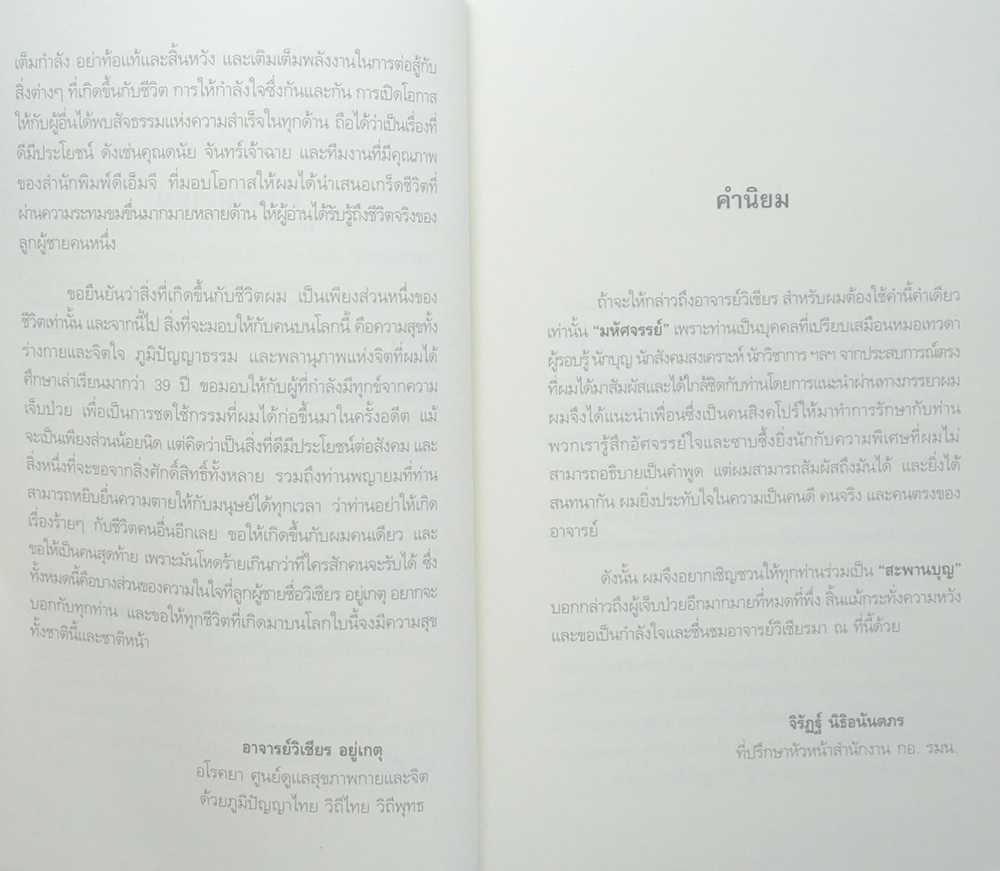 เต็มกำลัง อย่าท้อแท้และสิ้นหวัง และเติมเต็มพลังงานในการต่อสู้กับ
สิ่งต่างๆ ที่เกิดขึ้นกับชีวิต การให้กำลังใจซึ่งกันและกัน การเปิดโอกาส
ให้กับผู้อื่นได้พบสัจธรรมแห่งความสำเร็จในทุกด้าน ถือได้ว่าเป็นเรื่องที่
ดีมีประโยชน์ ดังเช่นคุณดนัย จันทร์เจ้าฉาย และทีมงานที่มีคุณภาพ
ของสำนักพิมพ์ดีเอ็มจี ที่มอบโอกาสให้ผมได้นำเสนอเกร็ดชีวิตที่
ผ่านความระทมขมขื่นมากมายหลายด้าน ให้ผู้อ่านได้รับรู้ถึงชีวิตจริงของ
ลูกผู้ชายคนหนึ่ง
ขอยืนยันว่าสิ่งที่เกิดขึ้นกับชีวิตผม เป็นเพียงส่วนหนึ่งของ
ชีวิตเท่านั้น และจากนี้ไป สิ่งที่จะมอบให้กับคนบนโลกนี้ คือความสุขทั้ง
ร่างกายและจิตใจ ภูมิปัญญาธรรม และพลานุภาพแห่งจิตที่ผมได้
ศึกษาเล่าเรียนมากว่า 39 ปี ขอมอบให้กับผู้ที่กำลังมีทุกข์จากความ
เจ็บป่วย เพื่อเป็นการชดใช้กรรมที่ผมได้ก่อขึ้นมาในครั้งอดีต แม้
จะเป็นเพียงส่วนน้อยนิด แต่คิดว่าเป็นสิ่งที่ดีมีประโยชน์ต่อสังคม และ
สิ่งหนึ่งที่จะขอจากสิ่งศักดิ์สิทธิ์ทั้งหลาย รวมถึงท่านพญายมที่ท่าน
สามารถหยิบยื่นความตายให้กับมนุษย์ได้ทุกเวลา ว่าท่านอย่าให้เกิด
เรื่องร้ายๆ กับชีวิตคนอื่นอีกเลย ขอให้เกิดขึ้นกับผมคนเดียว และ
ขอให้เป็นคนสุดท้าย เพราะมันโหดร้ายเกินกว่าที่ใครสักคนจะรับได้ ซึ่ง
ทั้งหมดนี้คือบางส่วนของความในใจที่ลูกผู้ชายชื่อวิเชียร อยู่เกตุ อยากจะ
บอกกับทุกท่าน และขอให้ทุกชีวิตที่เกิดมาบนโลกใบนี้จงมีความสุข
ทั้งชาตินี้และชาติหน้า
อาจารย์วิเชียร อยู่เกตุ
อโรคยา ศูนย์ดูแลสุขภาพกายและจิต
ด้วยภูมิปัญญาไทย วิถีไทย วิถีพุทธ
คำนิยม
ถ้าจะให้กล่าวถึงอาจารย์วิเชียร สำหรับผมต้องใช้คำนี้คำเดียว
เท่านั้น “มหัศจรรย์” เพราะท่านเป็นบุคคลที่เปรียบเสมือนหมอเทวดา
ผู้รอบรู้ นักบุญ นักสังคมสงเคราะห์ นักวิชาการ ฯลฯ จากประสบการณ์ตรง
ที่ผมได้มาสัมผัสและได้ใกล้ชิดกับท่านโดยการแนะนำผ่านทางภรรยาผม
ผมจึงได้แนะนำเพื่อนซึ่งเป็นคนสิงคโปร์ให้มาทำการรักษากับท่าน
พวกเรารู้สึกอัศจรรย์ใจและซาบซึ้งยิ่งนักกับความพิเศษที่ผมไม่
สามารถอธิบายเป็นคำพูด แต่ผมสามารถสัมผัสถึงมันได้ และยิ่งได้
สนทนากัน ผมยิ่งประทับใจในความเป็นคนดี คนจริง และคนตรงของ
อาจารย์
ดังนั้น ผมจึงอยากเชิญชวนให้ทุกท่านร่วมเป็น “สะพานบุญ”
บอกกล่าวถึงผู้เจ็บป่วยอีกมากมายที่หมดที่พึ่ง สิ้นแม้กระทั่งความหวัง
และขอเป็นกำลังใจและชื่นชมอาจารย์วิเชียรมา ณ ที่นี้ด้วย
จิรัฏฐ์ นิธิอนันตภร
ที่ปรึกษาหัวหน้าสำนักงาน กอ. รมน.